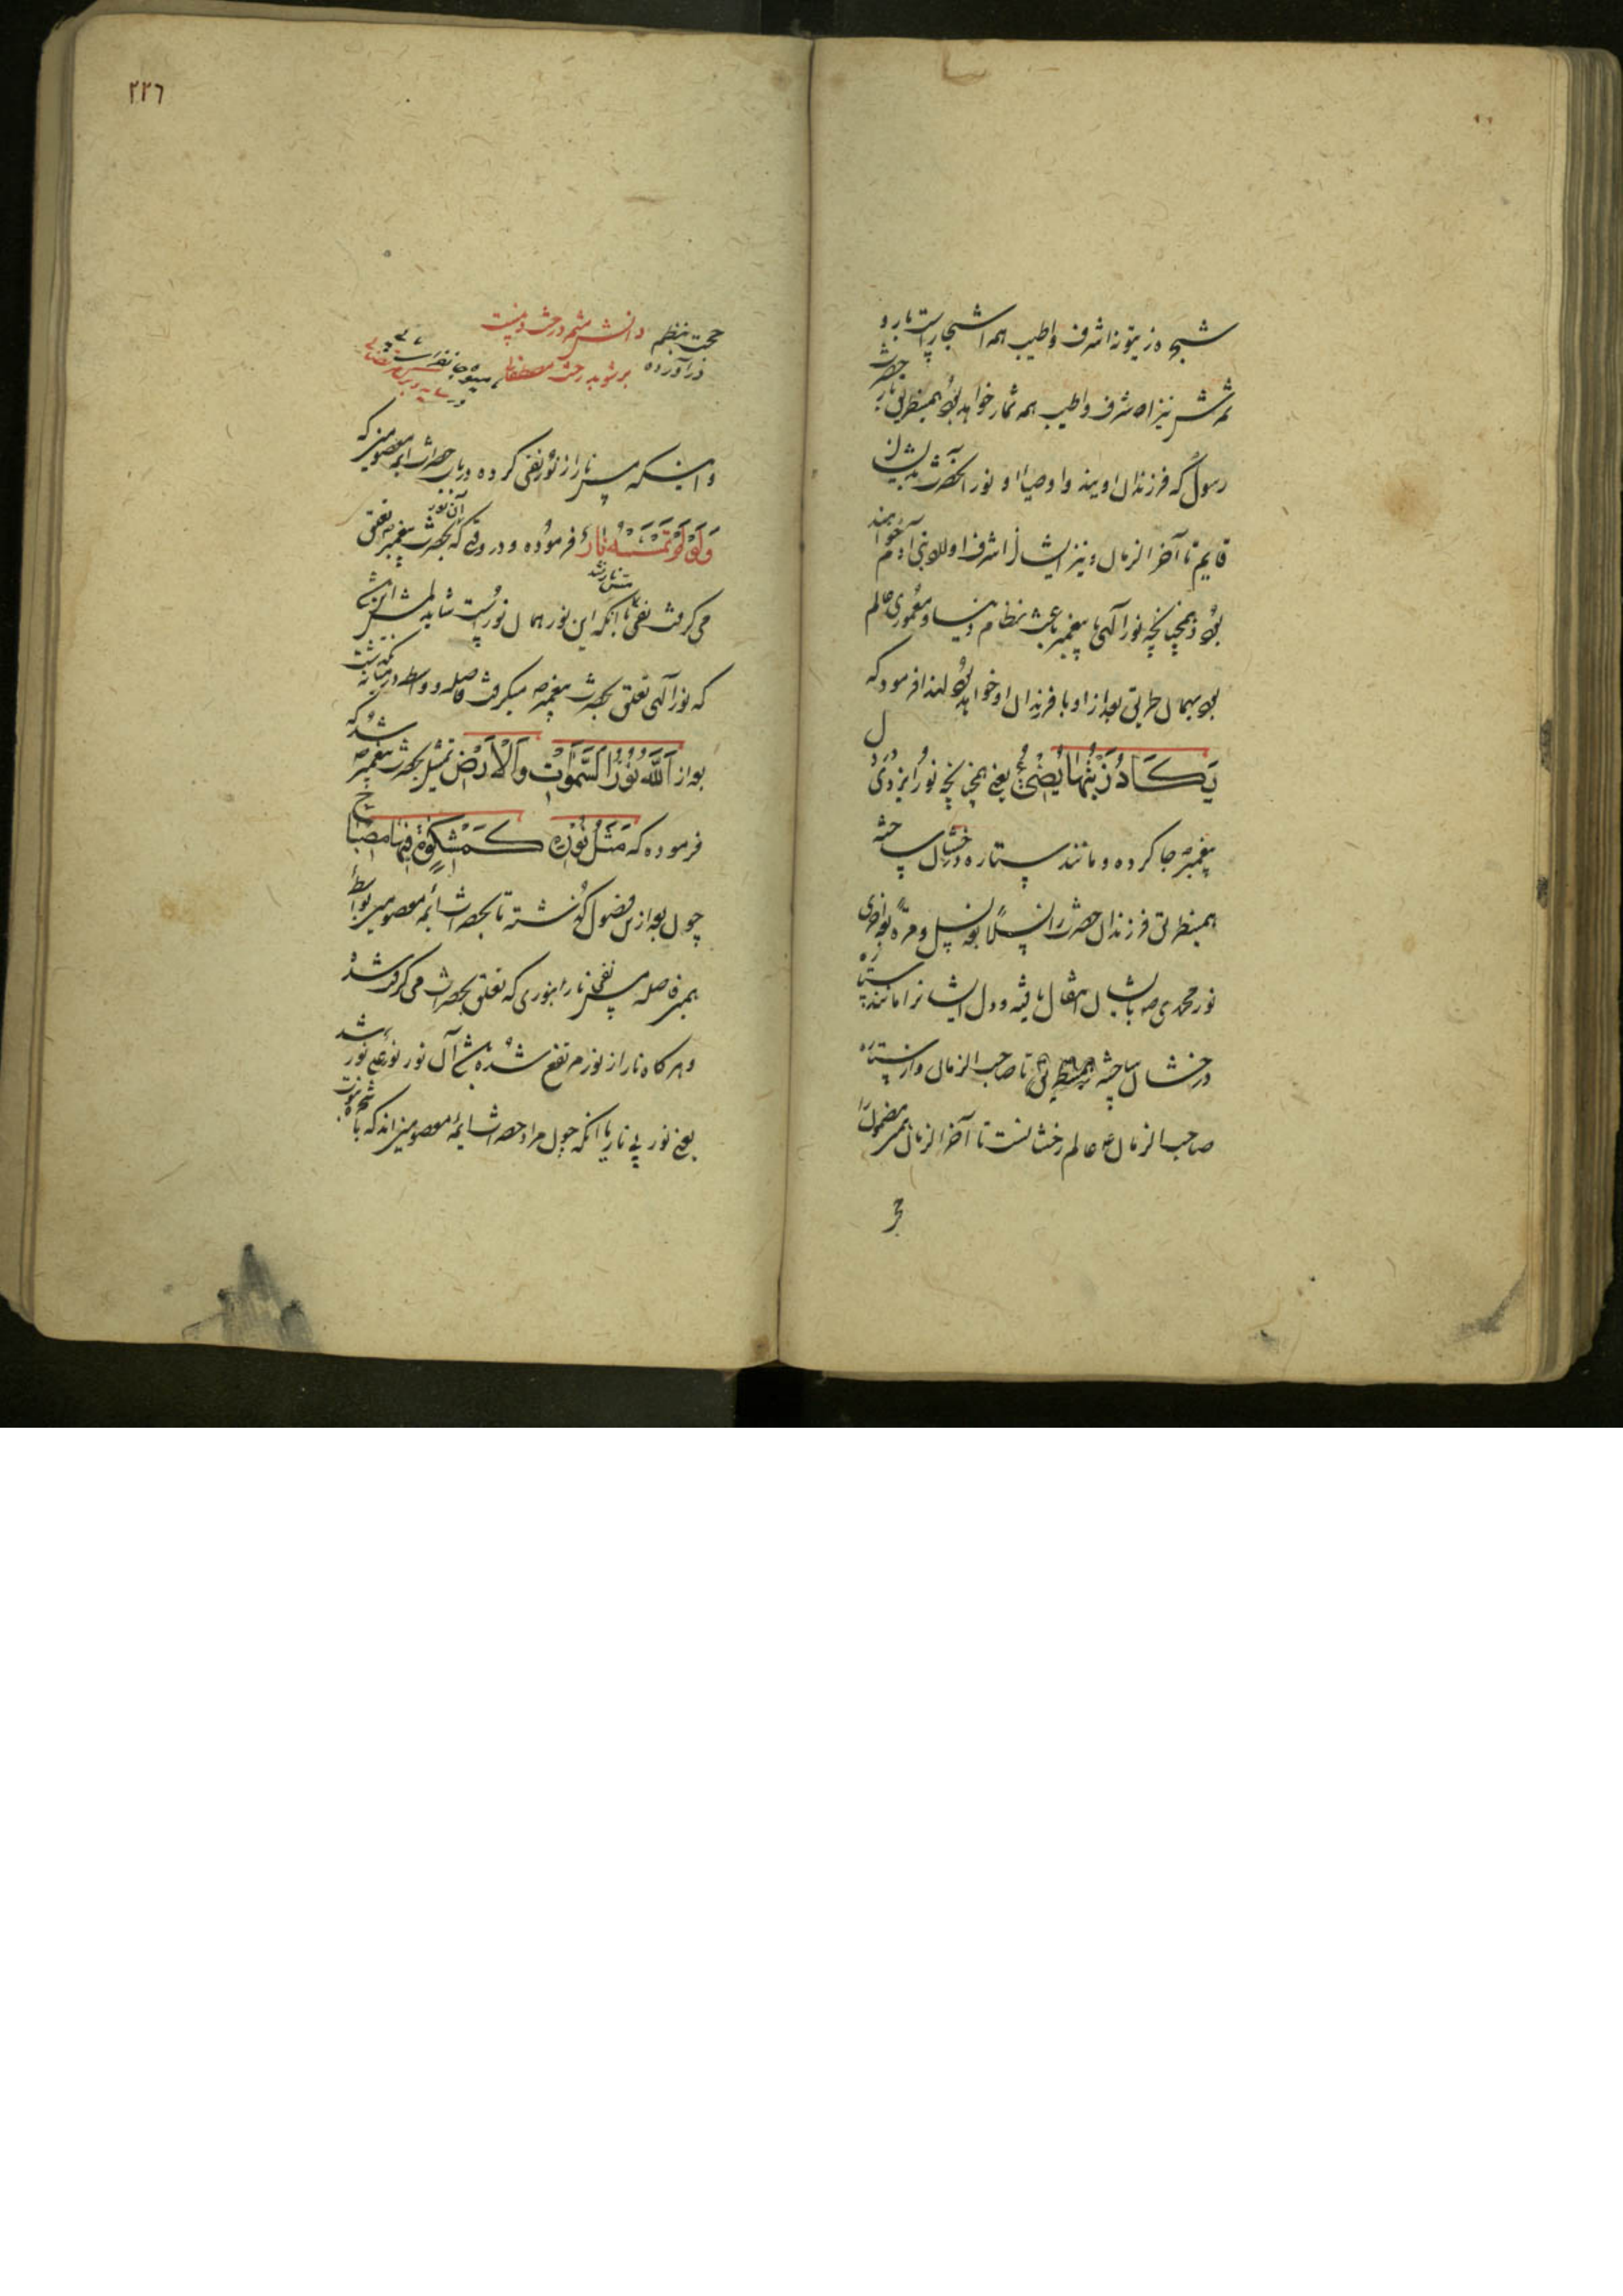 شجره زیتونه اشرف و اطیب همه اشجار است بار و
ثمرش نیز اشرف و اطیب همه ثمار خواهد بود همینطریق بار حضرت
رسول که فرزندان اویند و اوصیاء او نور آنحضرت بدیشان
قایم تا آخر الزمان و نیز ایشان اشرف اولاد بنی آدم خواهند
بود و همچنانچه نور الهی با پیغمبر باعث نظام دنیا و معموری عالم
بود بهمان طریق بعد از او با فرزندان او خواهد بود لهذا فرمود که
یَکَادُ زَیْتُهَا یُضِیءُ یعنی همچنانچه نور ایزدی در دل
پیغمبر جا کرده و مانند ستاره درخشان ساخته
همینطریق فرزندان حضرت را نسلا بعد نسل و مرة بعد اخری
نور محمدی ص بایشان انتقال یافته و دل ایشانرا مانند ستاره
درخشان ساخته همینطریق تا صاحب الزمان و از ستاره
صاحب الزمان ع عالم رخشانست تا آخر الزمان همین مضمون را
٢٢٦
حجت بنظم
در آورده
دانش
برشو بدرخت مصطفی
میوه جانفزاست
و اینکه مس نار از نور نفی کرده در باب حضرات ائمه معصومین که
وَلَوْ لَمْ تَمْسَسْهُ نَارٌ فرموده و در وقتی که آن نور بحضرت پیغمبر ص تعلق
می گرفت نفی مس نار نشد با آنکه این نور همان نورست شاید
که نور الهی تعلق بحضرت پیغمبر ص میگرفت فاصله و واسطه در میانه
بعد از اَللّٰهُ نُورُ السَّمٰوَاتِ وَالْاَرْضِ تمثیل بحضرت پیغمبر ص شد که
فرموده که مَثَلُ نُورِهِ کَمِشْکٰوةٍ فِیهَا مِصْبَاحٌ
چون بعد ازین فصول گذشته تا بحضرات ائمه معصومین بواسطه
همین فاصله نفی مس نار از نوری که تعلق بحضرات می گرفت شده
و هر گاه نار از نور مرتفع شده باشد آن نور نور علی نور شد
یعنی نور بی نار با آنکه چون مراد حضرات ائمه معصومین اند که